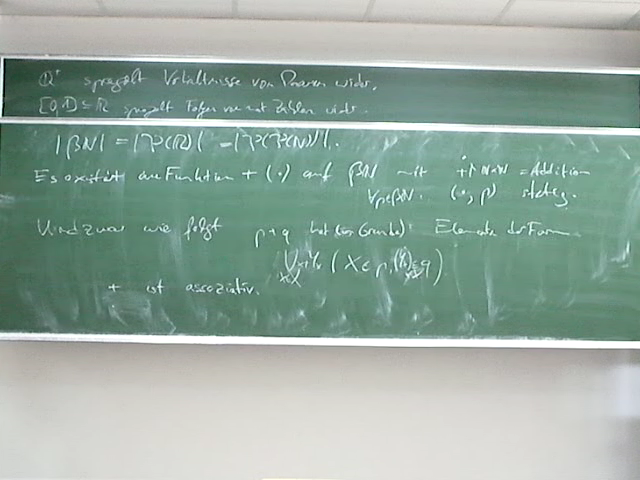 Q⁺ spiegelt Verhältnisse von Paaren wider.
[0,1] ⊆ R spiegelt Folgen von Zahlen wider.
|βN| = |P(R)| = |P(P(N))|.
Es existiert eine Funktion + (·) auf βN mit + ↾ N×N = Addition
∀p∈βN. (·, p) stetig.
Und zwar wie folgt p+q hat (als Grundm.) Elemente der Form
+ ist assoziativ.